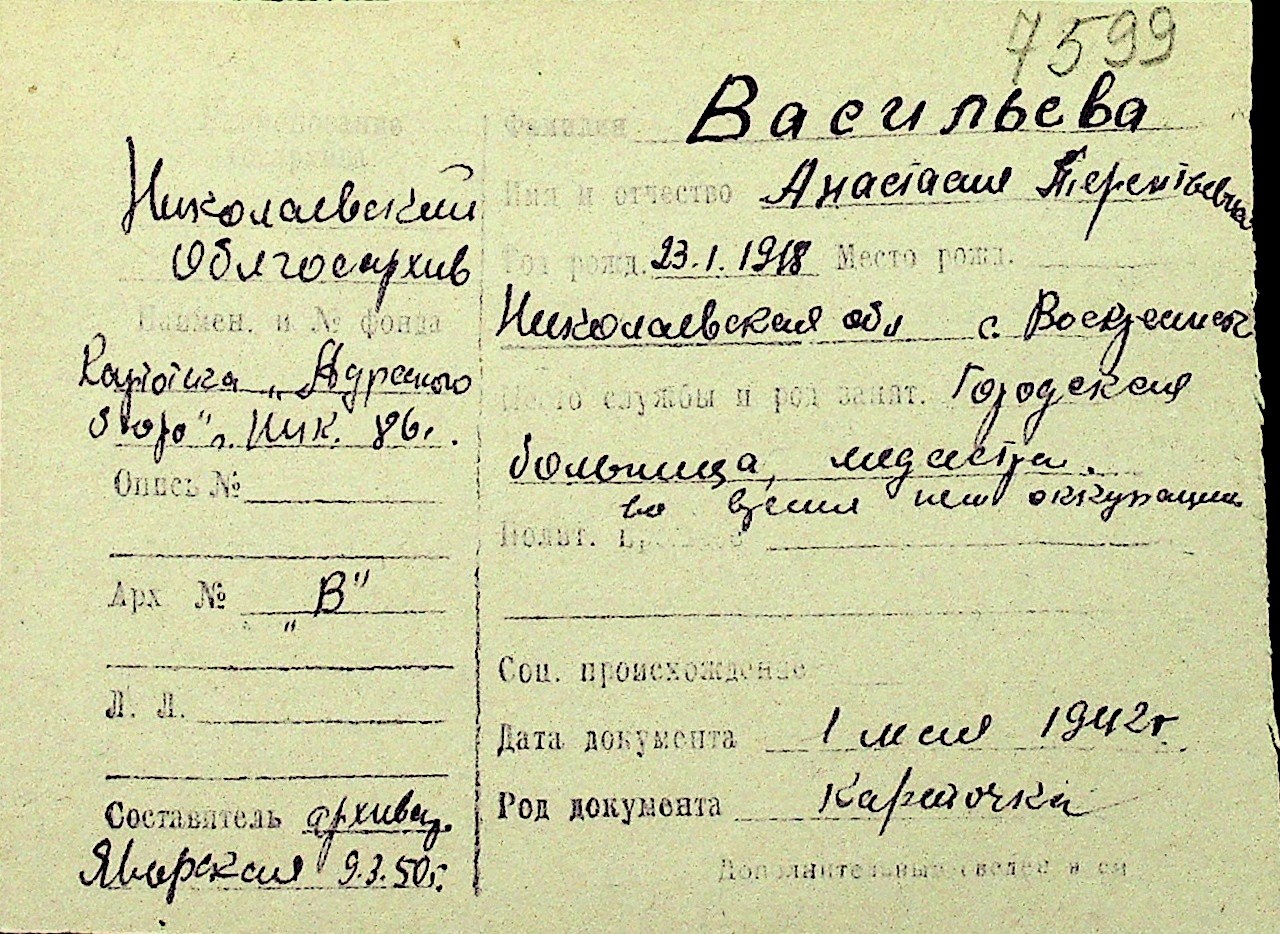 7599
Наименование
госархива
Николаевский
Облгосархив
Наимен. и № фонда
Картотека „Адресного
бюро" г. Ник.
Опись №
Арх № „В"
Л. Л.
Составитель архивар.
Яворская 9.3.50г.
Фамилия Васильева
Имя и отчество Анастасия Терентьевна
Год рожд. 23.1.1918 Место рожд.
Николаевская обл с. Воскресенск
Место службы и род занят. Городская
больница, медсестра.
во время нем оккупации
Полит.
Соц. происхождение
Дата документа 1 мая 1942г
Род документа Карточка
Дополнительные сведения